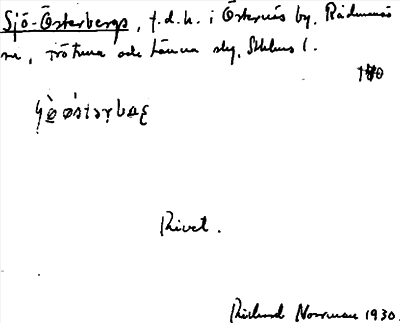 Sjö-Österbergs, f.d.h. i Östernäs by, Rådmansö
sn, Frötuna och Länna skg, Sthlms l.
Rivet.
Richard Norrman 1930.